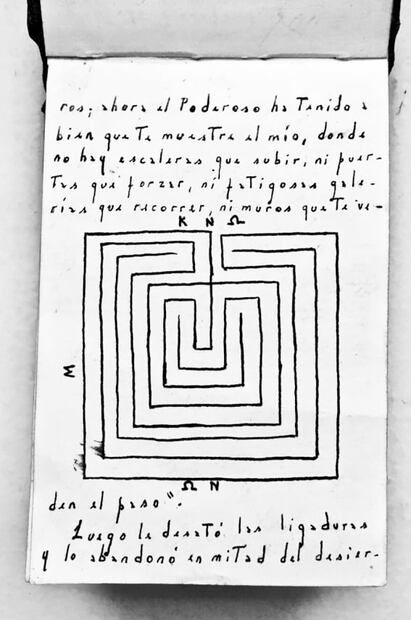 ros; ahora el Poderoso ha Tenido a
bien que Te muestre el mío, donde
no hay escaleras que subir, ni puer-
Tas que forzar, ni faTigosas gale-
rías que recorrer, ni muros que Te ve-
K N Ω
M
Ω N
den el paso".
Luego le desaTó las ligaduras
y lo abandonó en miTad del desier-